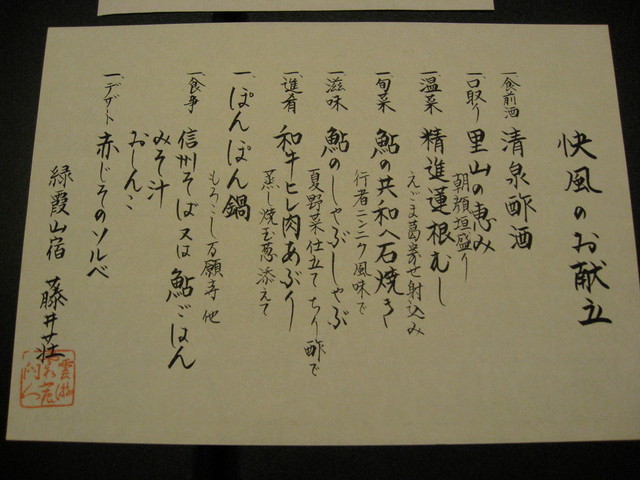 快風のお献立
一、食前酒 清泉酢酒
一、口取り 里山の恵み
朝顔垣盛り
一、温菜 精進蓮根むし
えごま葛寄せ射込み
一、旬菜 鮎の共和へ石焼き
行者ニンニク風味で
一、滋味 鮎のしゃぶしゃぶ
夏野菜仕立て ちり酢で
一、進肴 和牛ヒレ肉あぶり
蒸し焼玉葱添えて
一、ぽんぽん鍋
もろこし万願寺他
一、食事 信州そば又は鮎ごはん
みそ汁
おしんこ
一、デザート 赤じそのソルベ
緑霞山宿 藤井荘